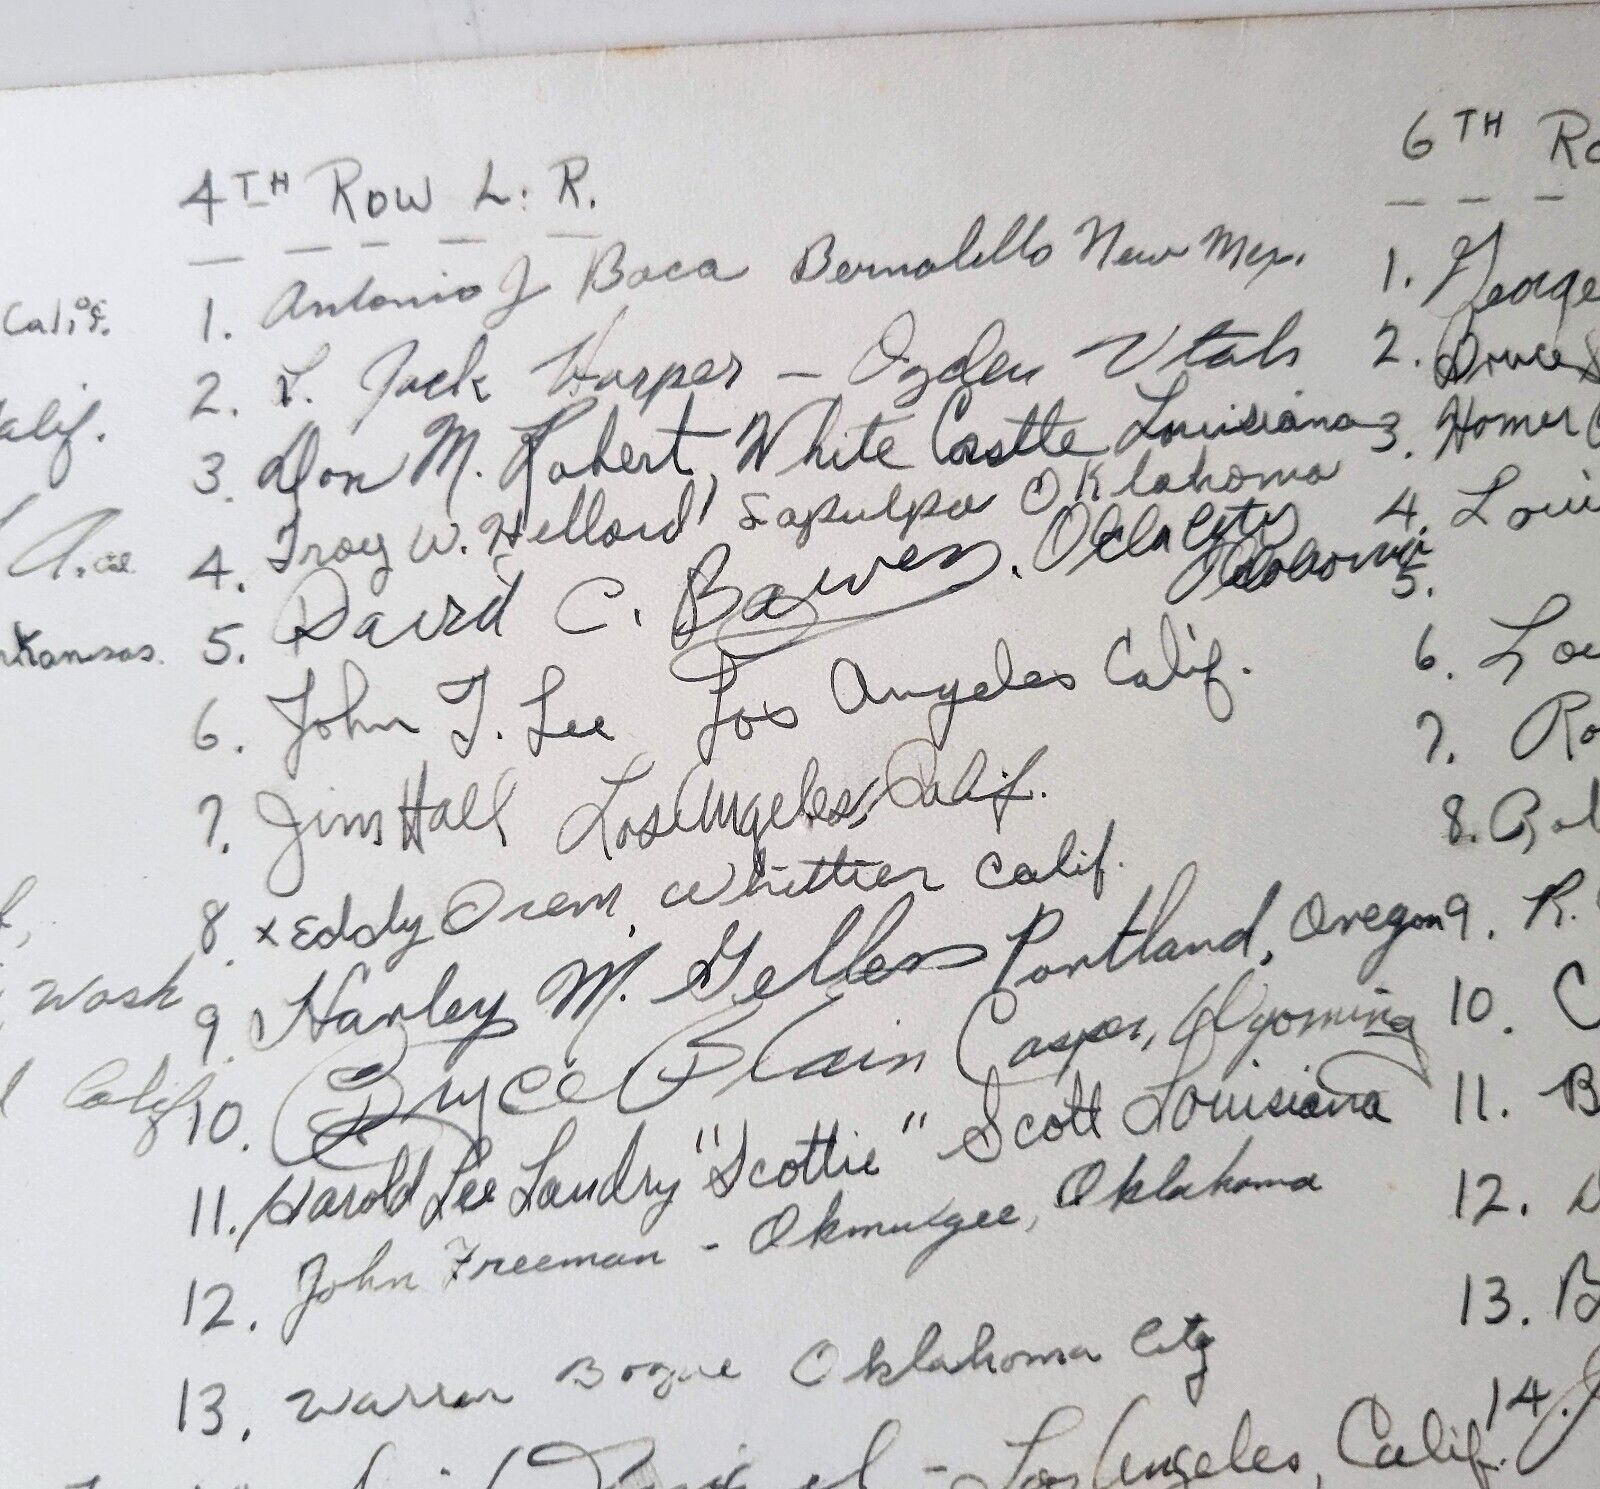 4TH ROW L. R.
1. Antonio J Baca Bernalillo New Mex.
2. L. Jack Harper - Ogden Utah
3. Don M. Robert, White Castle Louisiana
4. Troy W. Hellard Sapulpa Oklahoma
5. David C. Bowen. Okla City Oklahoma
6. John T. Lee Los Angeles Calif.
7. Jim Hall Los Angeles, Calif.
8. x Eddy Orem, Whittier Calif.
9. Harley M. Gellers Portland, Oregon
10. Bryce Blain Casper, Wyoming
11. Harold Lee Landry "Scottie" Scott Louisiana
12. John Freeman - Okmulgee, Oklahoma
13. Warren Bogue Oklahoma City
- Los Angeles, Calif.
Calif.
alif.
Cal
rkansas.
Wash
Calif
6TH Ro
1. George
2. Bruce
3. Homer C
4. Loui
5.
6. Lou
7. Ro
8.
9. R.
10. C
11. B
12. D
13. B
14. J